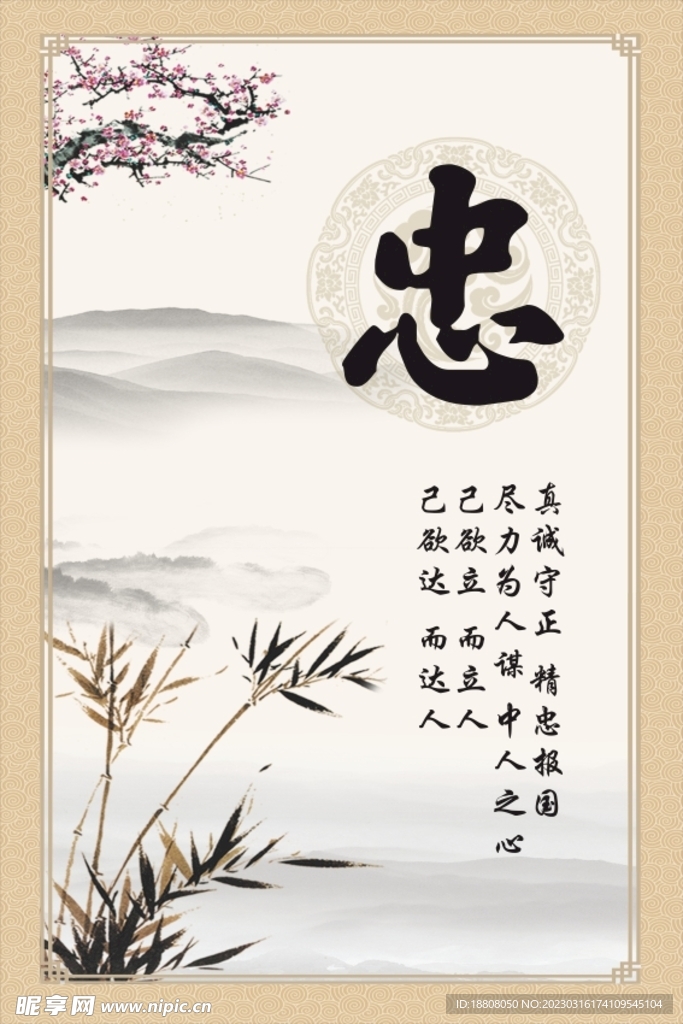 忠
真诚守正 精忠报国
尽力为人谋 中人之心
己欲立 而立人
己欲达 而达人
昵享网 www.nipic.cn
ID:18808050 NO:20230316174109545104